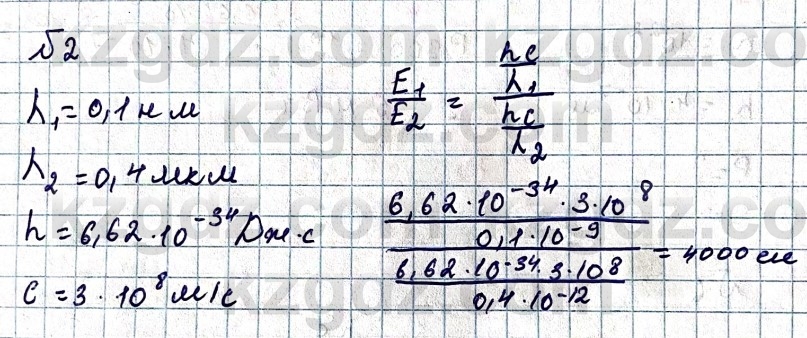 №2
λ₁ = 0,1 нм
λ₂ = 0,4 мкм
h = 6,62 · 10⁻³⁴ Дж · с
c = 3 · 10⁸ м/с
E₁/E₂ = (hc/λ₁)/(hc/λ₂)
(6,62 · 10⁻³⁴ · 3 · 10⁸ / 0,1 · 10⁻⁹) / (6,62 · 10⁻³⁴ · 3 · 10⁸ / 0,4 · 10⁻¹²) = 4000
kzgdz.com